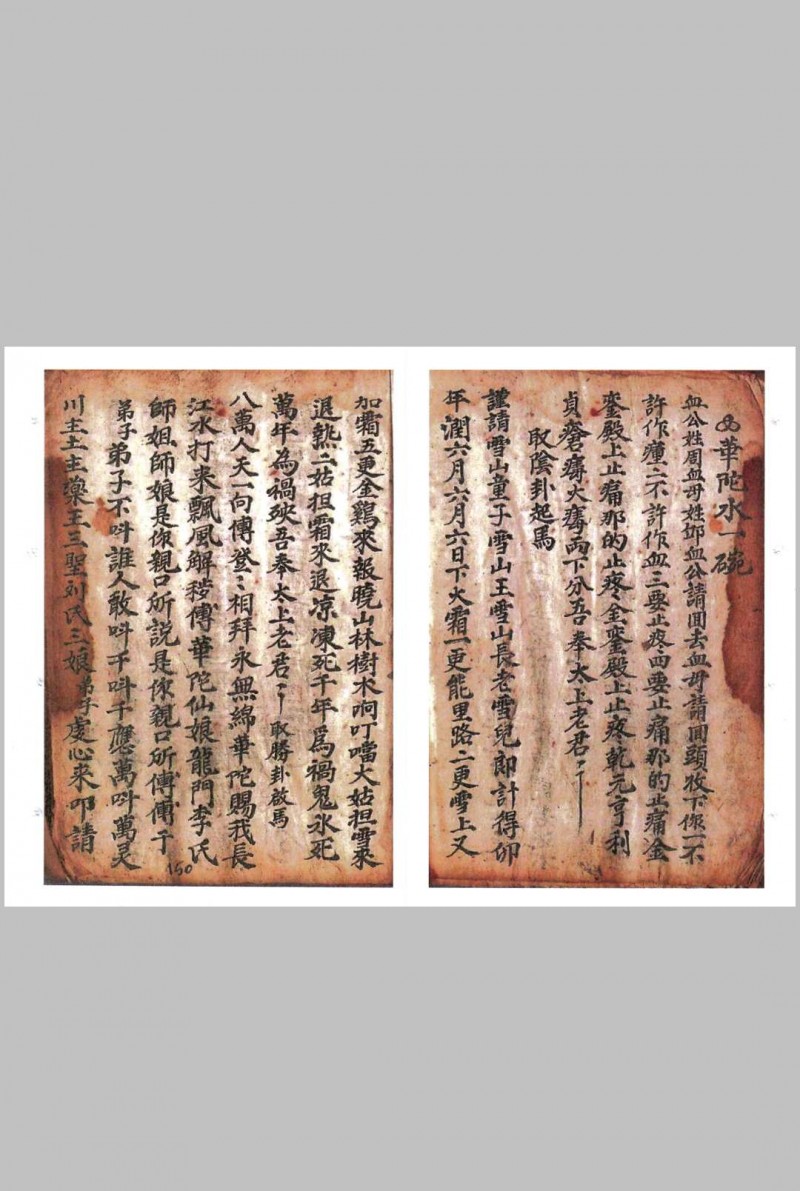 華陀水一碗
血公姓周血母姓邱血公請囬去血母請囬頭收下你一不
許作癀二不許作血三要止疼两要止痛那的止痛金
銮殿上止痛那的止疼金銮殿上止疼乾元亨利
貞瘡癆大癆两下分吾奉太上老君
取陰卦起馬
謹請雪山童子雪山王雪山長老雪兒郎計得卯
年潤六月六月六日下火霜一更能里路二更雪上又
加霜五更金鷄来報曉山林樹木响叮噹大姑担雪來
退熱二姑担霜來退凉凍死千年為禍鬼氷死
萬年為禍殃吾奉太上老君 取勝卦啟馬
八萬人天一向傳登〻相拜永無綿華陀賜我長
江水打来飄風解穢傳華陀仙娘龍門李氏
師姐師娘是你親口所說是你親口所傳傳于
弟子弟子不呌誰人敢呌千呌千應萬呌萬灵
川主土主藥王三聖刘氏三娘弟子虔心來叩請
150